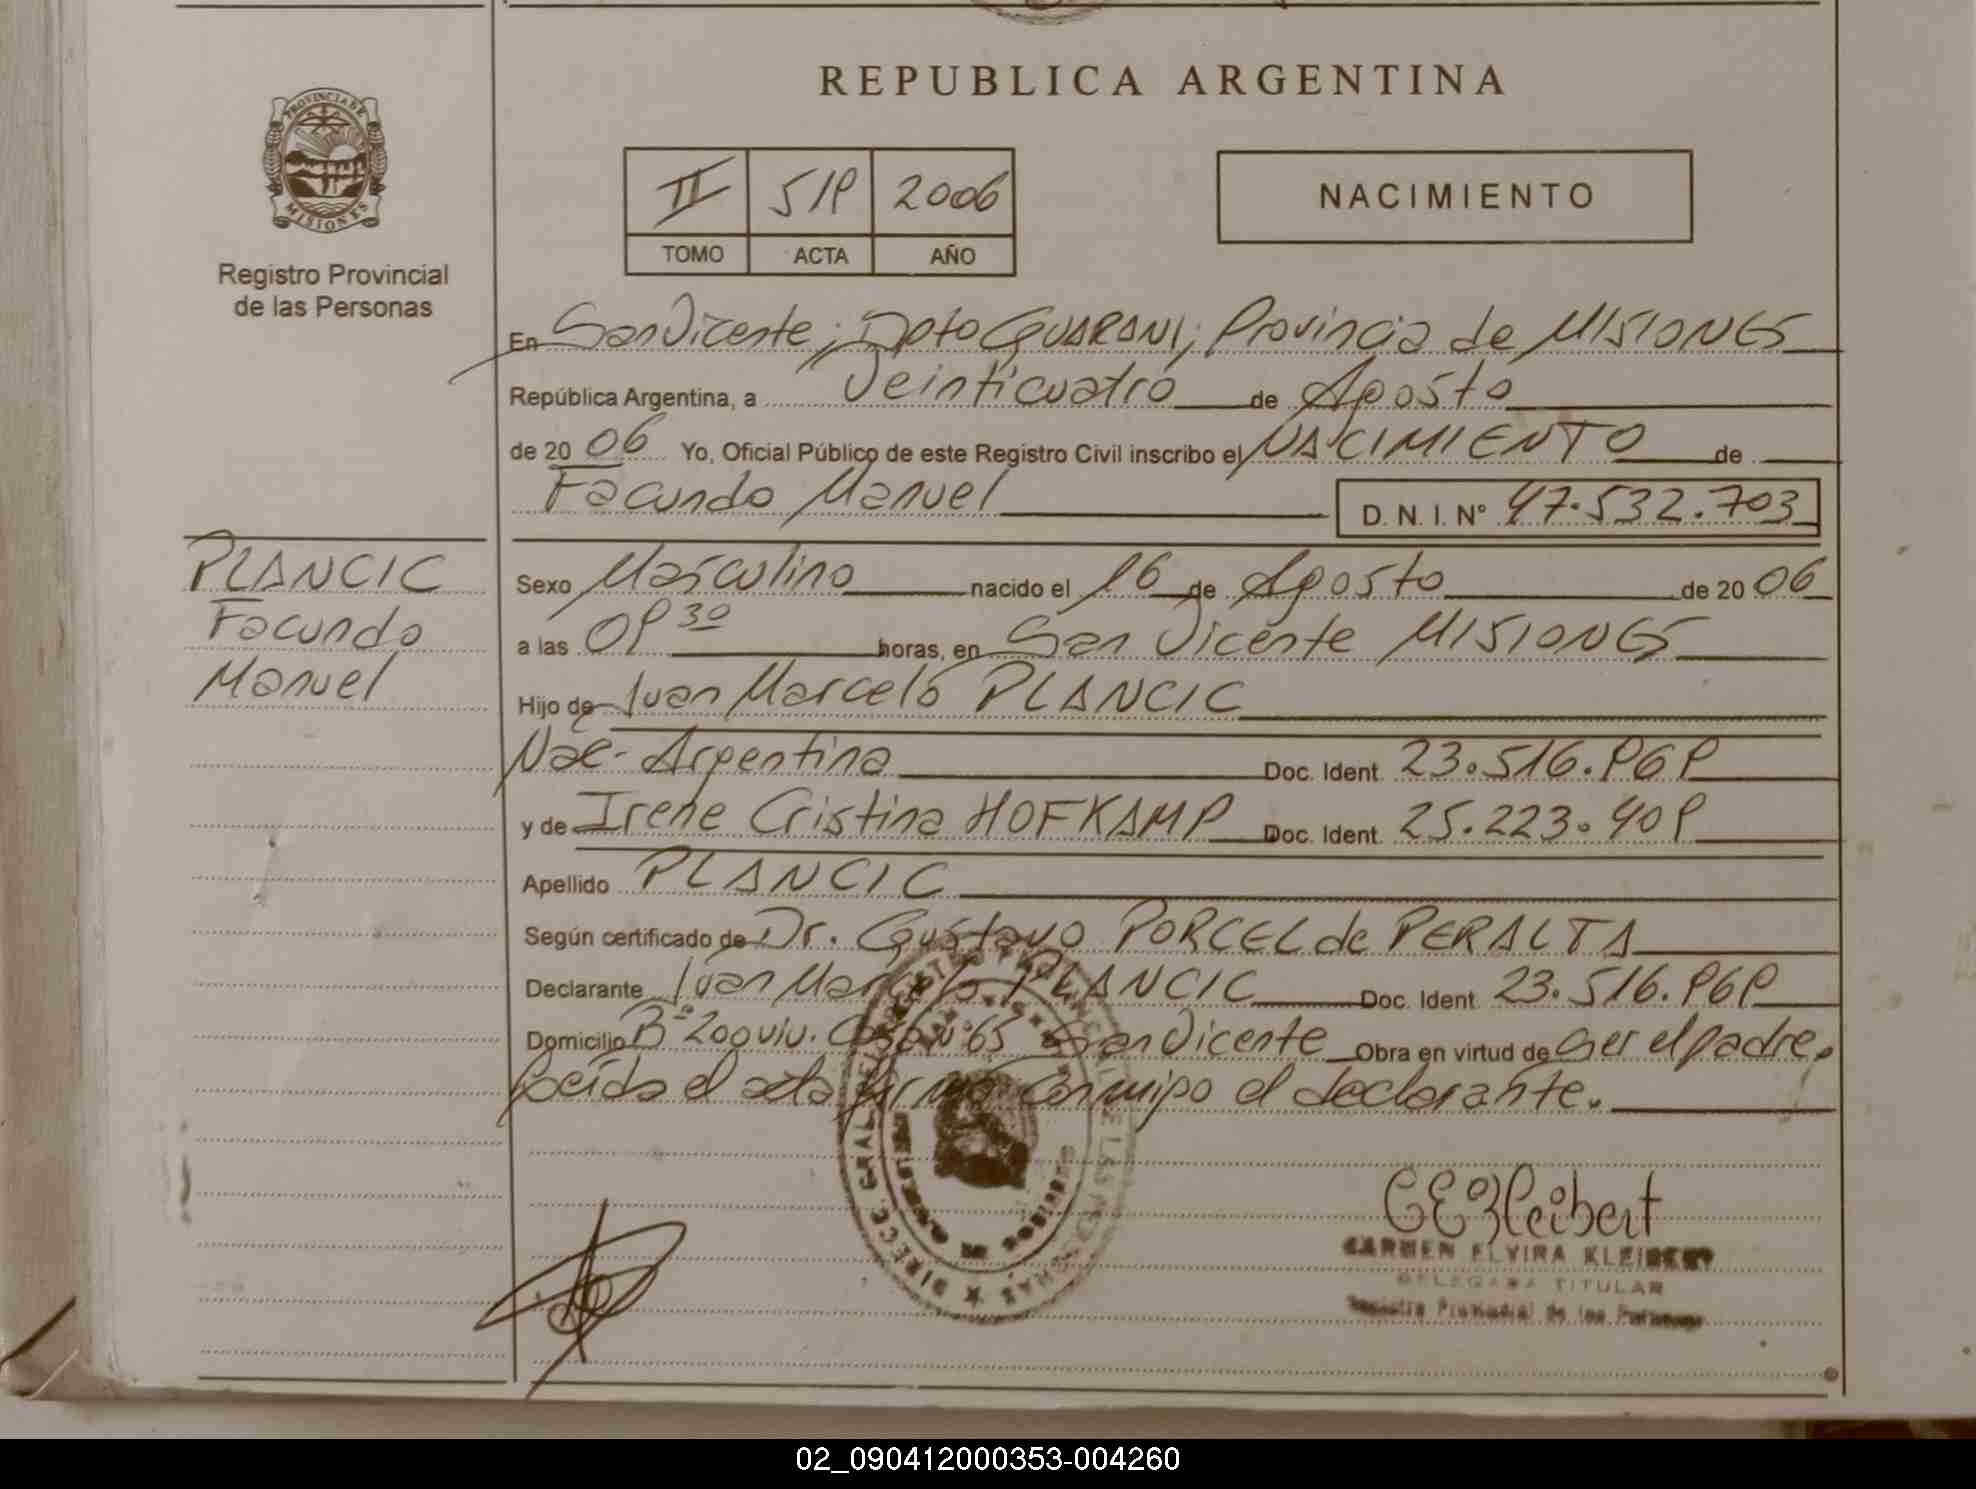 PROVINCIA DE
MISIONES
Registro Provincial
de las Personas
REPUBLICA ARGENTINA
II 519 2006
TOMO ACTA AÑO
NACIMIENTO
En San Vicente; Dpto GUARANI; Provincia de MISIONES
República Argentina, a Veinticuatro de Agosto
de 20 06 Yo, Oficial Público de este Registro Civil inscribo el NACIMIENTO de
Facundo Manuel D. N. I. N° 47.532.703
PLANCIC
Facundo
Manuel
Sexo Masculino nacido el 16 de Agosto de 20 06
a las 09 30 horas, en San Vicente MISIONES
Hijo de Ivan Marcelo PLANCIC
Nac- Argentina Doc. Ident. 23.516.969
y de Irene Cristina HOFKAMP Doc. Ident. 25.223.409
Apellido PLANCIC
Según certificado de Dr. Gustavo PORCEL de PERALTA
Declarante Ivan Marcelo PLANCIC Doc. Ident. 23.516.969
Domicilio B° 200 viv. Casa N° 65 San Vicente Obra en virtud de ser el padre.
Leída el acta firma conmigo el declarante.
CEKleibert
CARMEN ELVIRA KLEIBERT
DELEGADA TITULAR
Registro Provincial de las Personas
02_090412000353-004260